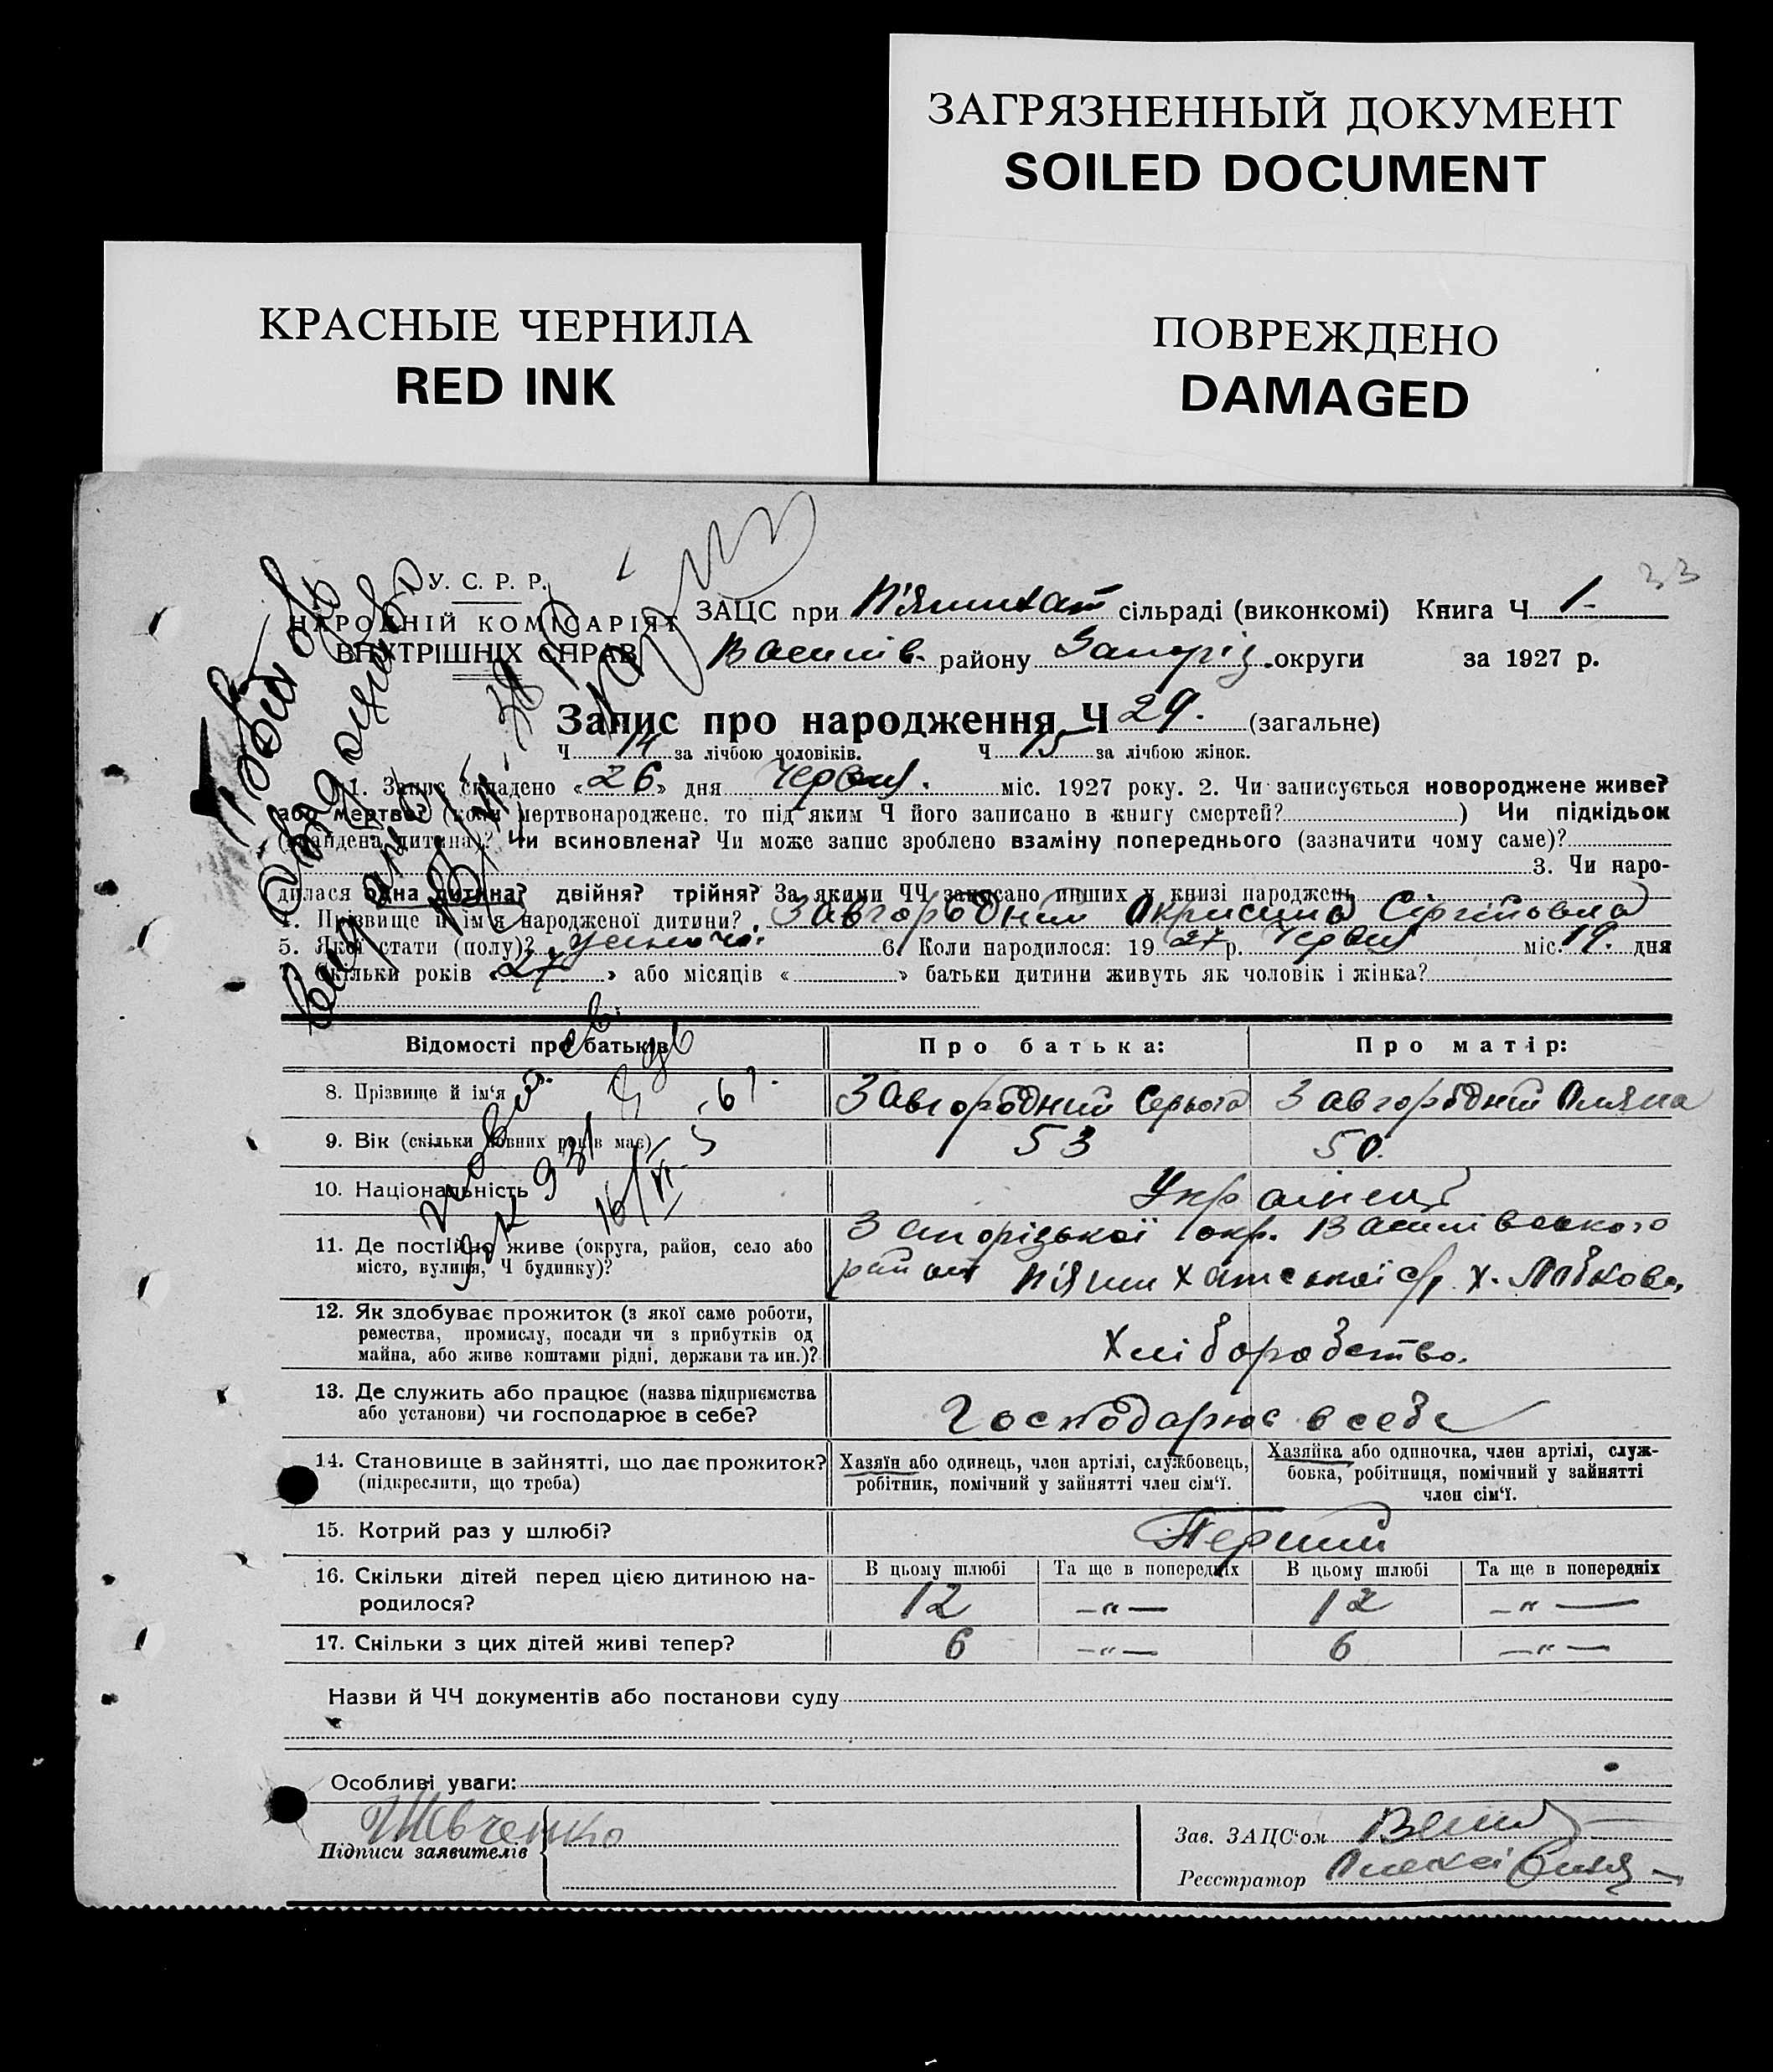 ЗАГРЯЗНЕННЫЙ ДОКУМЕНТ
SOILED DOCUMENT
КРАСНЫЕ ЧЕРНИЛА
RED INK
ПОВРЕЖДЕНО
DAMAGED
33
У. С. Р. Р.
НАРОДНІЙ КОМІСАРІЯТ
ВНУТРІШНІХ СПРАВ
ЗАЦС при П'ятихат сільраді (виконкомі) Книга Ч 1-
Василів. району Запоріз. округи за 1927 р.
Запис про народження Ч 29. (загальне)
Ч 14 за лічбою чоловіків. Ч 15 за лічбою жінок.
1. Запис складено «26» дня Червня. міс. 1927 року. 2. Чи записується новороджене живе?
або мертве? (коли мертвонароджене, то під яким Ч його записано в книгу смертей? ) Чи підкідьок
(знайдена дитина)? Чи всиновлена? Чи може запис зроблено взаміну попереднього (зазначити чому саме)?
3. Чи наро-
дилася одна дитина? двійня? трійня? За якими ЧЧ записано инших у книзі народжень
4. Прізвище й ім'я народженої дитини? Завгородній Сергійовна
5. Якої статі (полу)? жіночої 6. Коли народилося: 1927 р. Червня міс. 19. дня
Скільки років «27» або місяців « » батьки дитини живуть як чоловік і жінка?
Відомості про батьків
Про батька:
Про матір:
8. Прізвище й ім'я
Завгородний Завгородній
9. Вік (скільки повних років має)
53 50.
10. Національність
Українці
11. Де постійно живе (округа, район, село або
місто, вулиця, Ч будинку)?
Запорізької окр. Василівського
район П'ятихатської с/р х.
12. Як здобуває прожиток (з якої саме роботи,
ремества, промислу, посади чи з прибутків од
майна, або живе коштами рідні, держави та ин.)?
Хліборобство.
13. Де служить або працює (назва підприємства
або установи) чи господарює в себе?
Господарює в себе
14. Становище в зайнятті, що дає прожиток?
(підкреслити, що треба)
Хазяїн або одинець, член артілі, службовець,
робітник, помічний у зайнятті член сім'ї.
Хазяйка або одиночка, член артілі, служ-
бовка, робітниця, помічний у зайнятті
член сім'ї.
15. Котрий раз у шлюбі?
Перший
16. Скільки дітей перед цією дитиною на-
родилося?
В цьому шлюбі Та ще в попередніх В цьому шлюбі Та ще в попередніх
12 —"— 12 —"—
17. Скільки з цих дітей живі тепер?
6 —"— 6 —"—
Назви й ЧЧ документів або постанови суду
Особливі уваги:
Шевченко
Підписи заявителів
Зав. ЗАЦС'ом
Реєстратор